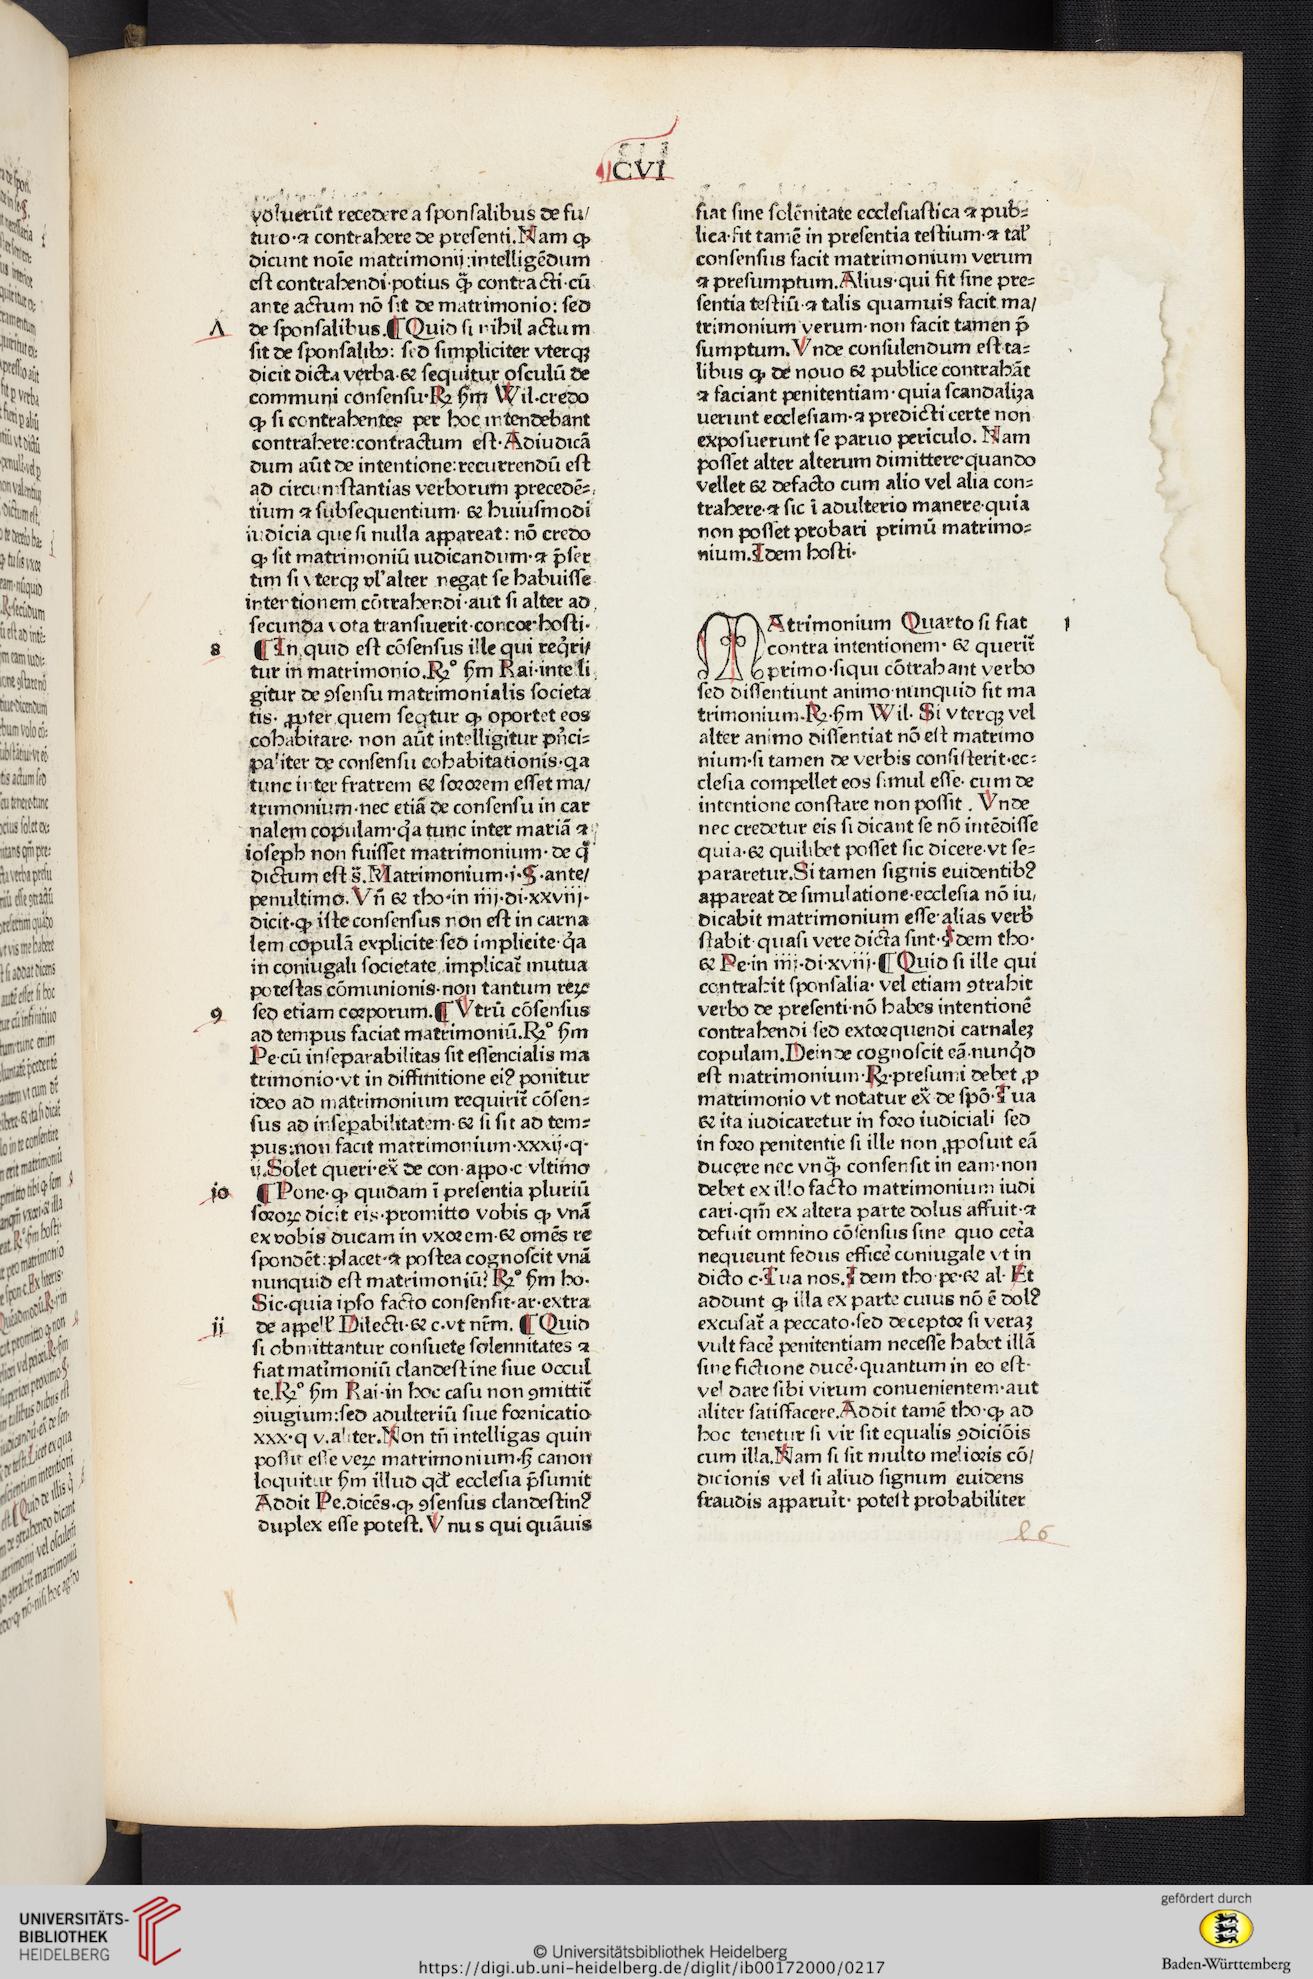 CVI
voluerūt recedere a sponsalibus de fu/
turo·⁊ contrahere de presenti.Nam ꝙ
dicunt noīe matrimonij:intelligēdum
est contrahendi·potius q̄ȝ contracti·cū
ante actum nō sit de matrimonio: sed
Λ
de sponsalibus.¶Quid si nihil actum
sit de sponsalibꝰ: sed simpliciter vterqȝ
dicit dicta verba·& sequitur osculū de
communi consensu·R̷ ẜm Wil·credo
ꝙ si contrahentes per hoc intendebant
contrahere:contractum est·Adiudicā
dum aūt de intentione:recurrendū est
ad circumstantias verborum precedē=
tium ⁊ subsequentium· & huiusmodi
iudicia que si nulla appareat: nō credo
ꝙ sit matrimoniū iudicandum·⁊ p̄ser
tim si vterqȝ vl'alter negat se habuisse
intentionem cōtrahendi·aut si alter ad
secunda vota transiuerit·concor·hosti·
8
¶In quid est cōsensus ille qui reqͥri/
tur in matrimonio.R̷º ẜm Rai·intelli
gitur de ꝯsensu matrimonialis societa
tis· ꝓpter quem seqtur ꝙ oportet eos
cohabitare· non aūt intelligitur pn̄ci=
paliter de consensu cohabitationis·qa
tunc inter fratrem & sororem esset ma/
trimonium·nec etiā de consensu in car
nalem copulam·qͥa tunc inter mariā ⁊
ioseph non fuisset matrimonium· de q̄
dictum est s̄.Matrimonium·j·§·ante/
penultimo.Vn̄ & tho·in iiij·di·xxviij·
dicit·ꝙ iste consensus non est in carna
lem copulā explicite·sed implicite·qͥa
in coniugali societate implicat̄ mutua
potestas cōmunionis·non tantum reꝝ
9
sed etiam corporum.¶Vtrū cōsensus
ad tempus faciat matrimoniū.R̷º ẜm
Pe·cū inseparabilitas sit essencialis ma
trimonio·vt in diffinitione eiꝰ ponitur
ideo ad matrimonium requirit̄ cōsen=
sus ad inseꝑabilitatem·& si sit ad tem=
pus:non facit matrimonium·xxxij·q·
ij.Solet queri·ex̄ de con·appo·c vltimo
jo
¶Pone·ꝙ quidam ī presentia pluriū
soroꝝ dicit eis·promitto vobis ꝙ vnā
ex vobis ducam in vxorem·& omēs re
spondēt:placet·⁊ postea cognoscit vnā
nunquid est matrimoniū? R̷º ẜm ho·
Sic·quia ipso facto consensit·ar·extra
jj
de appell' Dilecti·& c·vt nr̄m. ¶Quid
si obmittantur consuete solennitates ⁊
fiat matͥmoniū clandestine siue occul
te.R̷º ẜm Rai·in hoc casu non ꝯmittit̄
ꝯiugium:sed adulteriū siue fornicatio
xxx·q v.aliter.Non tn̄ intelligas quin
possit esse veꝝ matrimonium·sȝ canon
loquitur ẜm illud qd' ecclesia p̄sumit
Addit Pe.dicēs·ꝙ ꝯsensus clandestinꝰ
duplex esse potest.Vnus qui quāuis
fiat sine solēnitate ecclesiastica ⁊ pub=
lica·fit tamē in presentia testium·⁊ tal'
consensus facit matrimonium verum
⁊ presumptum.Alius·qui fit sine pre=
sentia testiū·⁊ talis quamuis facit ma/
trimonium verum·non facit tamen p̄
sumptum.Vnde consulendum est ta=
libus ꝙ de nouo & publice contrahāt
⁊ faciant penitentiam·quia scandaliza
uerunt ecclesiam·⁊ predicti certe non
exposuerunt se paruo periculo. Nam
posset alter alterum dimittere·quando
vellet & defacto cum alio vel alia con=
trahere·⁊ sic ī adulterio manere·quia
non posset probari primū matrimo=
nium.Idem hosti·
1
MAtrimonium Quarto si fiat
contra intentionem· & querit̄
primo·siqui cōtrahant verbo
sed dissentiunt animo·nunquid sit ma
trimonium·R̷·ẜm Wil· Si vterqȝ vel
alter animo dissentiat nō est matrimo
nium·si tamen de verbis consisterit·ec=
clesia compellet eos simul esse· cum de
intentione constare non possit . Vnde
nec credetur eis si dicant se nō intēdisse
quia·& quilibet posset sic dicere·vt se=
pararetur.Si tamen signis euidentibꝰ
appareat de simulatione·ecclesia nō iu/
dicabit matrimonium esse·alias verbꝰ
stabit·quasi vere dicta sint·Idem tho·
& Pe·in iiij·di·xviij·¶Quid si ille qui
contrahit sponsalia· vel etiam ꝯtrahit
verbo de presenti·nō habēs intentionē
contrahendi sed extorquendi carnaleȝ
copulam.Deinde cognoscit eā·nunqͥd
est matrimonium·R̷·presumi debet ꝓ
matrimonio vt notatur ex̄ de spō·Tua
& ita iudicaretur in foro iudiciali sed
in foro penitentie si ille non ꝓposuit eā
ducere nec vnq̄ȝ consensit in eam·non
debet ex illo facto matrimonium iudi
cari·qm̄ ex altera parte dolus affuit·⁊
defuit omnino cōsensus sine quo cet̄a
nequeunt fedus efficē coniugale vt in
dicto c·Tua nos.Idem tho·pe·& al· Et
addunt ꝙ illa ex parte cuius nō ē dolꝰ
excusat̄ a peccato·sed deceptor si veraȝ
vult facē penitentiam necesse habet illā
sine fictione ducē·quantum in eo est·
vel dare sibi virum conuenientem·aut
aliter satisfacere.Addit tamē tho·ꝙ ad
hoc tenetur si vir sit equalis ꝯdiciōis
cum illa.Nam si sit multo melioris cō/
dicionis vel si aliud signum euidens
fraudis apparuit· potest probabiliter
l 6
UNIVERSITÄTS-
BIBLIOTHEK
HEIDELBERG
© Universitätsbibliothek Heidelberg
https://digi.ub.uni-heidelberg.de/diglit/ib00172000/0217
gefördert durch
Baden-Württemberg